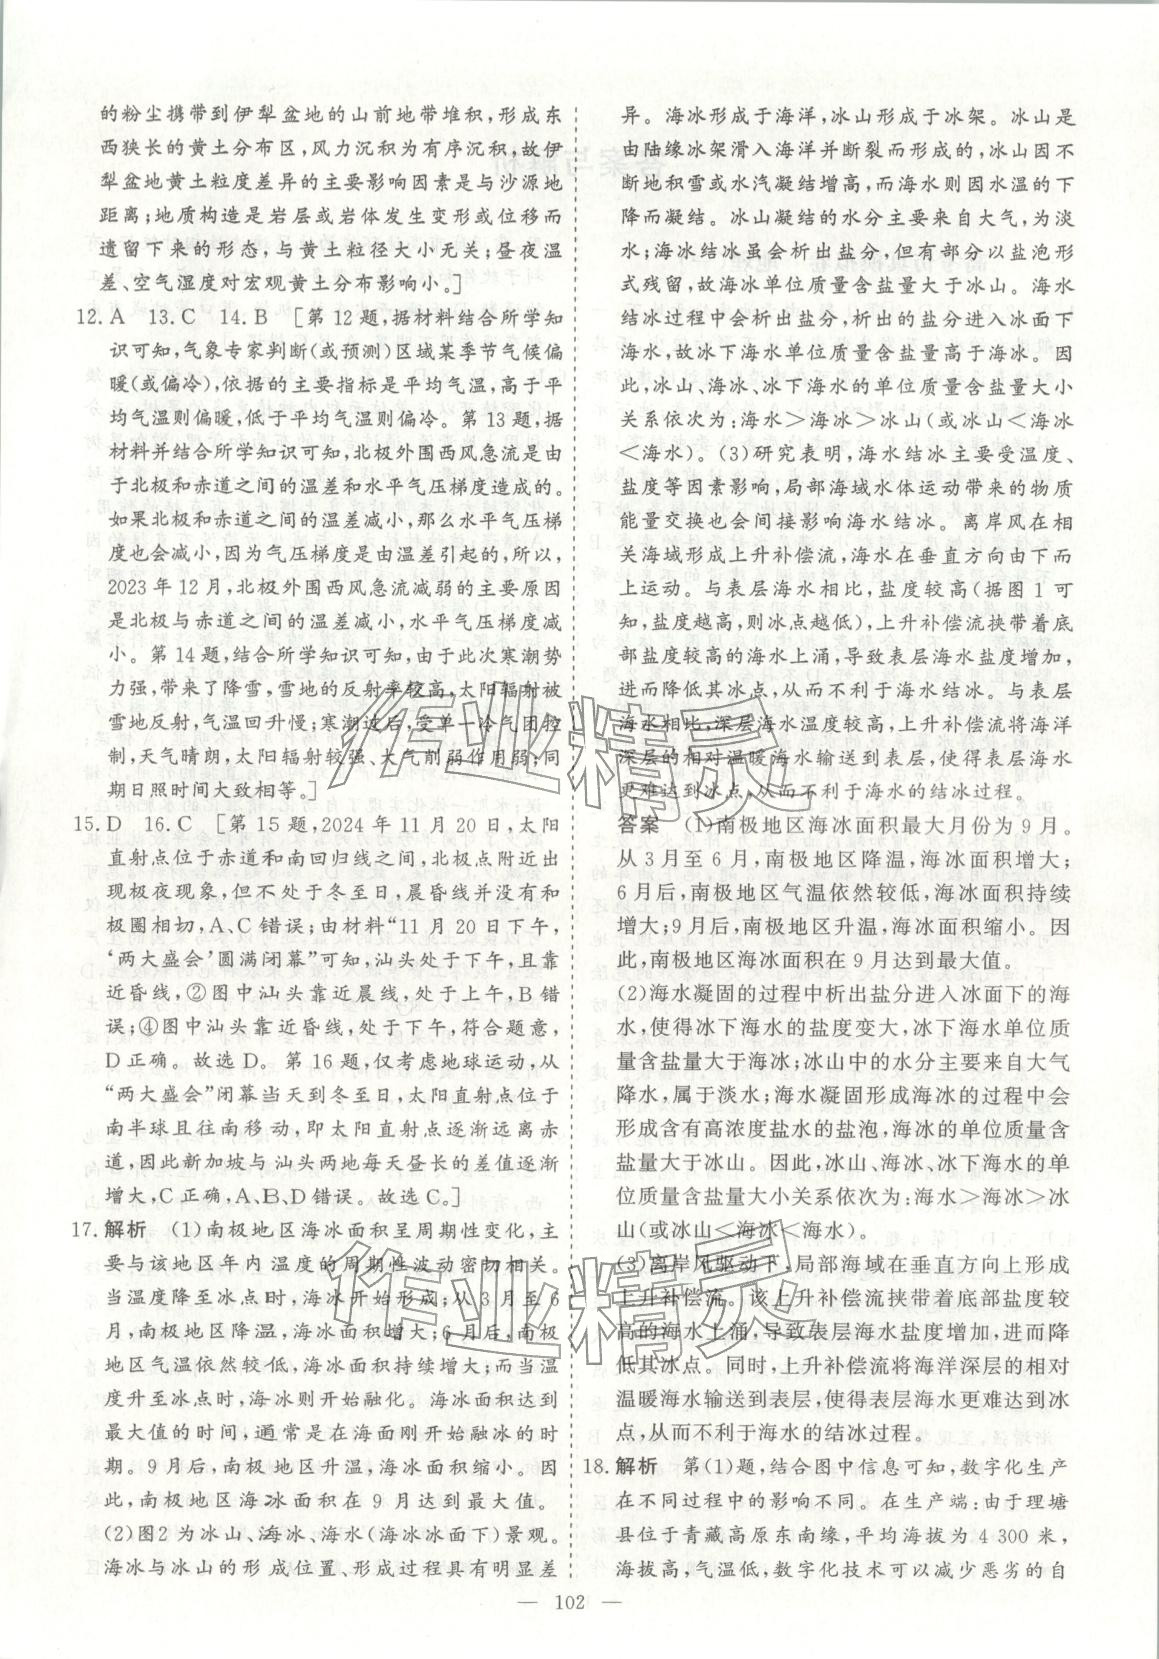 的粉尘携带到伊犁盆地的山前地带堆积,形成东
西狭长的黄土分布区,风力沉积为有序沉积,故伊
犁盆地黄土粒度差异的主要影响因素是与沙源地
距离;地质构造是岩层或岩体发生变形或位移而
遗留下来的形态,与黄土粒径大小无关;昼夜温
差、空气湿度对宏观黄土分布影响小。]
12.A 13.C 14.B [第12题,据材料结合所学知
识可知,气象专家判断(或预测)区域某季节气候偏
暖(或偏冷),依据的主要指标是平均气温,高于平
均气温则偏暖,低于平均气温则偏冷。第13题,据
材料并结合所学知识可知,北极外围西风急流是由
于北极和赤道之间的温差和水平气压梯度造成的。
如果北极和赤道之间的温差减小,那么水平气压梯
度也会减小,因为气压梯度是由温差引起的,所以,
2023年12月,北极外围西风急流减弱的主要原因
是北极与赤道之间的温差减小,水平气压梯度减
小。第14题,结合所学知识可知,由于此次寒潮势
力强,带来了降雪,雪地的反射率较高,太阳辐射被
雪地反射,气温回升慢;寒潮过后,受单一冷气团控
制,天气晴朗,太阳辐射较强、大气削弱作用弱;同
期日照时间大致相等。]
15.D 16.C [第15题,2024年11月20日,太阳
直射点位于赤道和南回归线之间,北极点附近出
现极夜现象,但不处于冬至日,晨昏线并没有和
极圈相切,A、C错误;由材料“11月20日下午,
‘两大盛会’圆满闭幕”可知,汕头处于下午,且靠
近昏线,②图中汕头靠近晨线,处于上午,B错
误;④图中汕头靠近昏线,处于下午,符合题意,
D正确。故选D。第16题,仅考虑地球运动,从
“两大盛会”闭幕当天到冬至日,太阳直射点位于
南半球且往南移动,即太阳直射点逐渐远离赤
道,因此新加坡与汕头两地每天昼长的差值逐渐
增大,C正确,A、B、D错误。故选C。]
17.解析 (1)南极地区海冰面积呈周期性变化,主
要与该地区年内温度的周期性波动密切相关。
当温度降至冰点时,海冰开始形成;从3月至6
月,南极地区降温,海冰面积增大;6月后,南极
地区气温依然较低,海冰面积持续增大;而当温
度升至冰点时,海冰则开始融化。海冰面积达到
最大值的时间,通常是在海面刚开始融冰的时
期。9月后,南极地区升温,海冰面积缩小。因
此,南极地区海冰面积在9月达到最大值。
(2)图2为冰山、海冰、海水(海冰冰面下)景观。
海冰与冰山的形成位置、形成过程具有明显差
异。海冰形成于海洋,冰山形成于冰架。冰山是
由陆缘冰架滑入海洋并断裂而形成的,冰山因不
断地积雪或水汽凝结增高,而海水则因水温的下
降而凝结。冰山凝结的水分主要来自大气,为淡
水;海冰结冰虽会析出盐分,但有部分以盐泡形
式残留,故海冰单位质量含盐量大于冰山。海水
结冰过程中会析出盐分,析出的盐分进入冰面下
海水,故冰下海水单位质量含盐量高于海冰。因
此,冰山、海冰、冰下海水的单位质量含盐量大小
关系依次为:海水>海冰>冰山(或冰山<海冰
<海水)。(3)研究表明,海水结冰主要受温度、
盐度等因素影响,局部海域水体运动带来的物质
能量交换也会间接影响海水结冰。离岸风在相
关海域形成上升补偿流,海水在垂直方向由下而
上运动。与表层海水相比,盐度较高(据图1可
知,盐度越高,则冰点越低),上升补偿流挟带着底
部盐度较高的海水上涌,导致表层海水盐度增加,
进而降低其冰点,从而不利于海水结冰。与表层
海水相比,深层海水温度较高,上升补偿流将海洋
深层的相对温暖海水输送到表层,使得表层海水
更难达到冰点,从而不利于海水的结冰过程。
答案 (1)南极地区海冰面积最大月份为9月。
从3月至6月,南极地区降温,海冰面积增大;
6月后,南极地区气温依然较低,海冰面积持续
增大;9月后,南极地区升温,海冰面积缩小。因
此,南极地区海冰面积在9月达到最大值。
(2)海水凝固的过程中析出盐分进入冰面下的海
水,使得冰下海水的盐度变大,冰下海水单位质
量含盐量大于海冰;冰山中的水分主要来自大气
降水,属于淡水;海水凝固形成海冰的过程中会
形成含有高浓度盐水的盐泡,海冰的单位质量含
盐量大于冰山。因此,冰山、海冰、冰下海水的单
位质量含盐量大小关系依次为:海水>海冰>冰
山(或冰山<海冰<海水)。
(3)离岸风驱动下,局部海域在垂直方向上形成
上升补偿流。该上升补偿流挟带着底部盐度较
高的海水上涌,导致表层海水盐度增加,进而降
低其冰点。同时,上升补偿流将海洋深层的相对
温暖海水输送到表层,使得表层海水更难达到冰
点,从而不利于海水的结冰过程。
18.解析 第(1)题,结合图中信息可知,数字化生产
在不同过程中的影响不同。在生产端:由于理塘
县位于青藏高原东南缘,平均海拔为4 300米,
海拔高,气温低,数字化技术可以减少恶劣的自
— 102 —
作业精灵
作业精灵